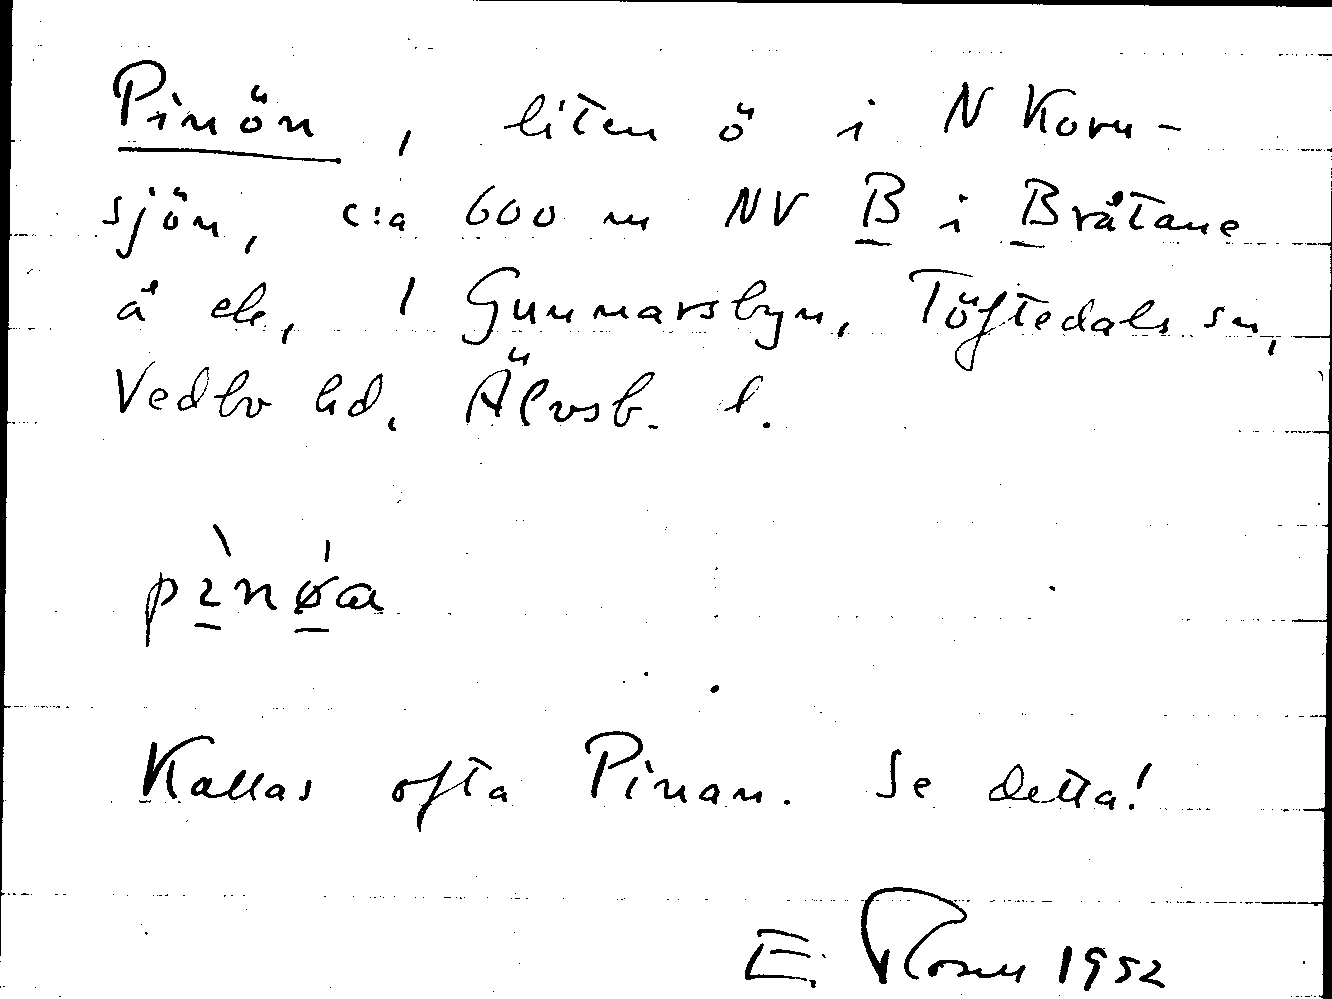 Pinön, liten ö i N Korn-
sjön, c:a 600 m NV B i Bråtane
å ek, 1 Gunnarsbyn, Töftedals sn,
Vedbo hd, Älvsb. l.
pìnǿa
Kallas ofta Pinan. Se detta!
E. 1952